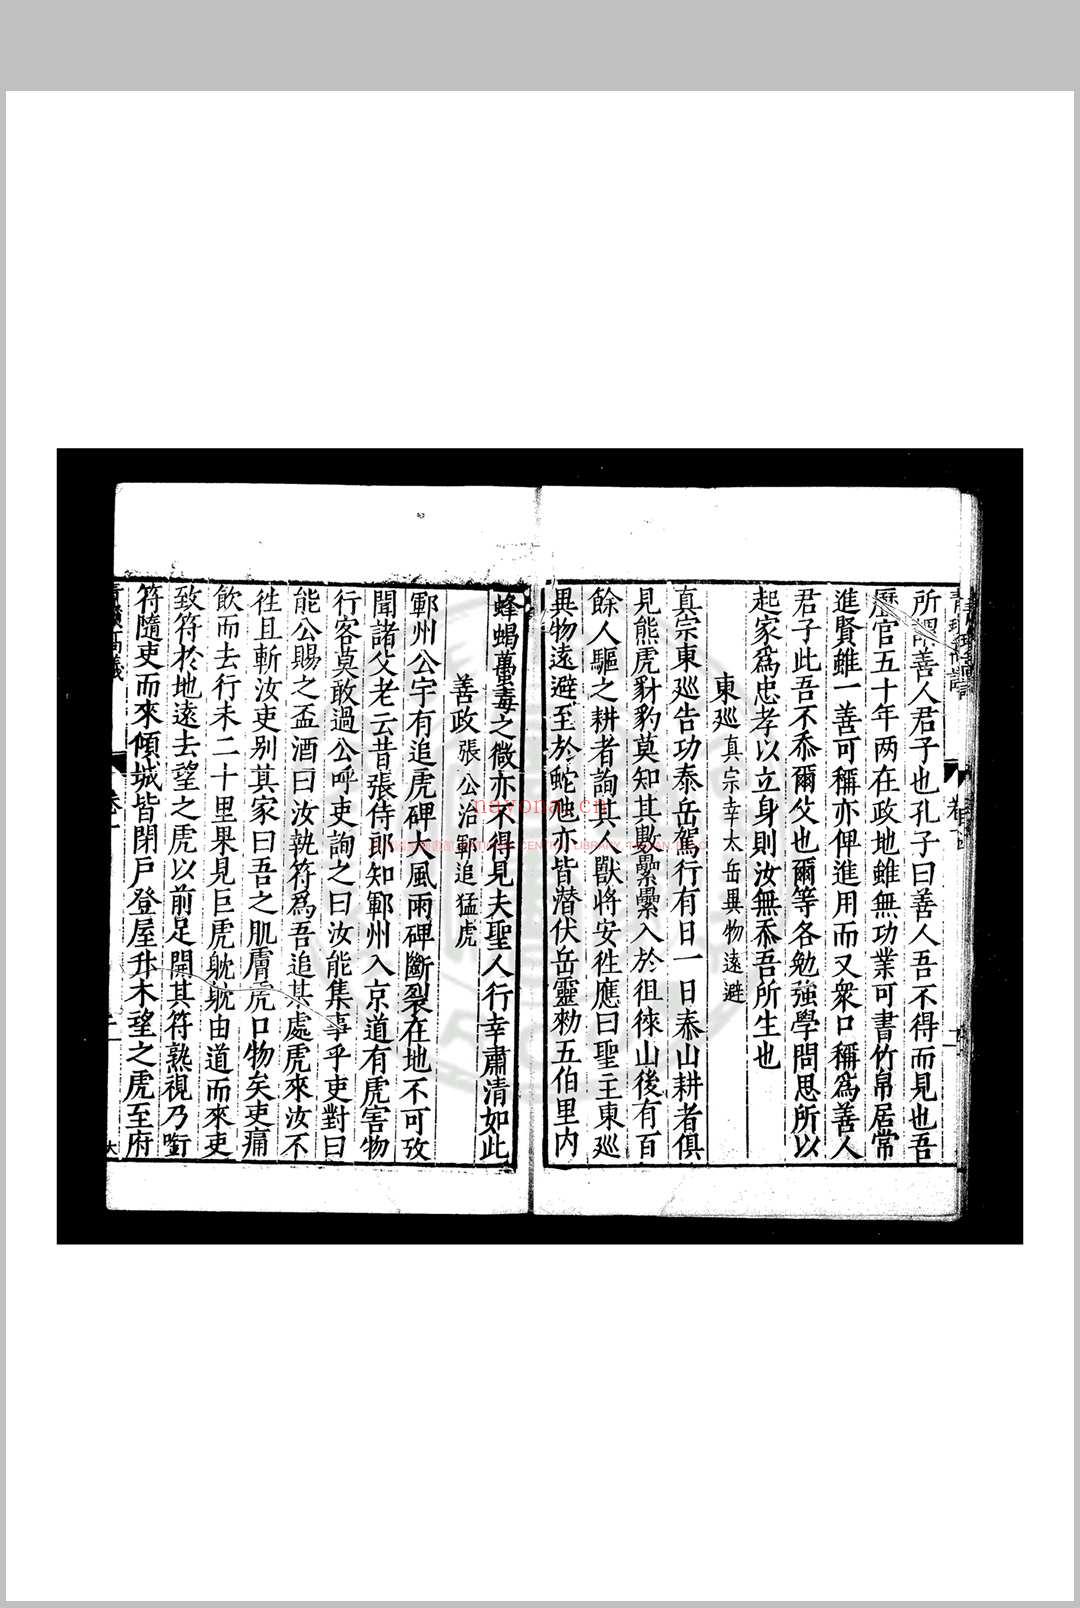 所謂善人君子也孔子曰善人吾不得而見也吾
歷官五十年两在政地雖無功業可書竹帛居常
進賢雖一善可稱亦俾進用而又衆口稱爲善人
君子此吾不忝爾父也爾等各勉強學問思所以
起家爲忠孝以立身則汝無忝吾所生也
東廵真宗幸太岳異物遠避
真宗東廵告功泰岳駕行有日一日泰山耕者俱
見熊虎豺豹莫知其數纍纍入於徂徠山後有百
餘人驅之耕者詢其人獸將安徃應曰聖主東廵
異物遠避至於蛇虺亦皆潜伏岳靈勑五伯里内
蜂蝎蠆毒之微亦不得見夫聖人行幸肅清如此
善政張公治鄆追猛虎
鄆州公宇有追虎碑大風雨碑斷裂在地不可攷
聞諸父老云昔張侍郎知鄆州入京道有虎害物
行客莫敢過公呼吏詢之曰汝能集事乎吏對曰
能公賜之盃酒曰汝執符爲吾追其處虎來汝不
徃且斬汝吏别其家曰吾之肌膚虎口物矣吏痛
飲而去行未二十里果見巨虎躭躭由道而來吏
致符於地遠去望之虎以前足開其符熟視乃啣
符隨吏而來傾城皆閉戸登屋升木望之虎至府
navona.cn